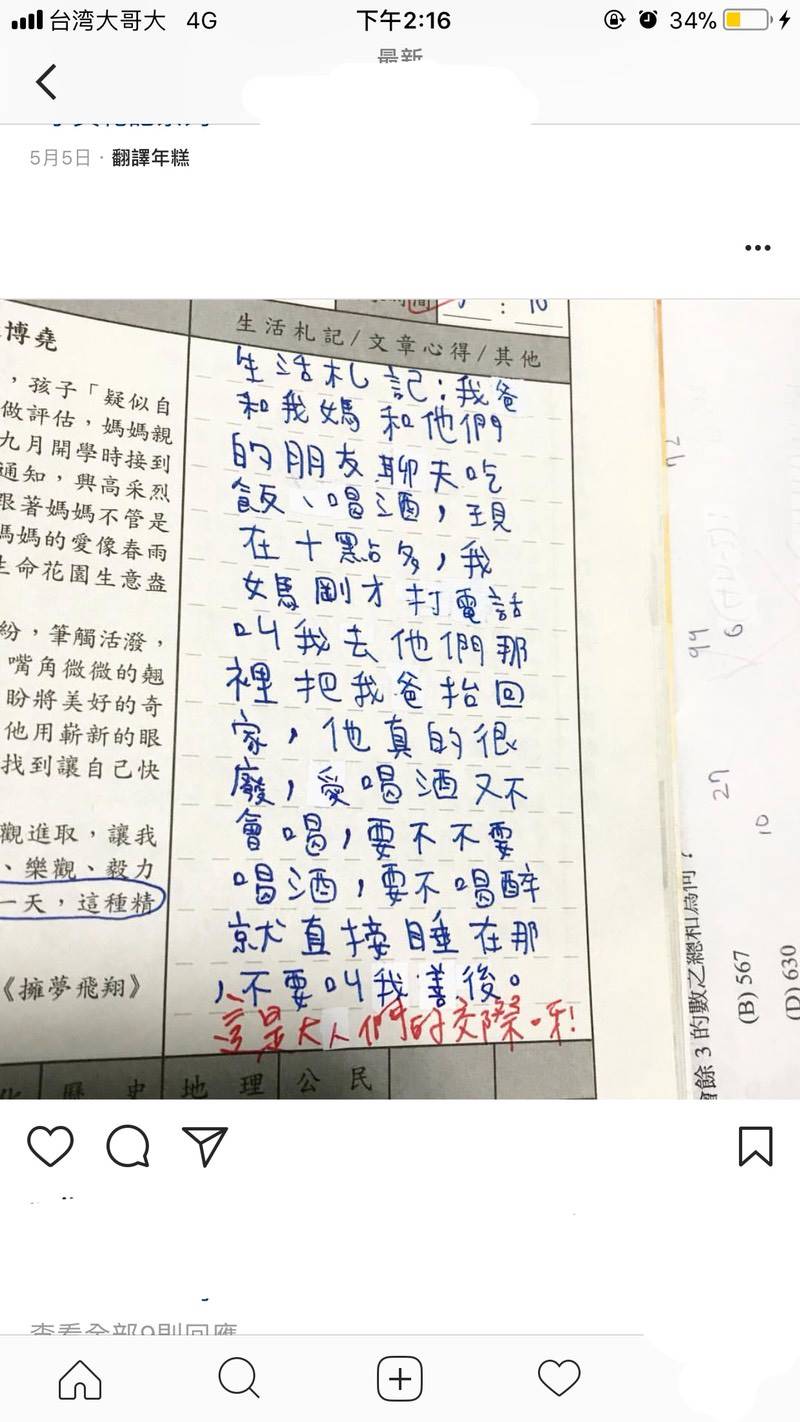 台灣大哥大 4G 下午2:16 34%
最新
5月5日 · 翻譯年糕
10
生活札記/文章心得/其他
博堯
，孩子「疑似自
做評估，媽媽親
九月開學時接到
通知，興高采烈
跟著媽媽不管是
媽媽的愛像春雨
生命花園生意盎
紛，筆觸活潑，
嘴角微微的翹
盼將美好的奇
他用嶄新的眼
找到讓自己快
觀進取，讓我
、樂觀、毅力
一天，這種精
《擁夢飛翔》
生活札記：我爸
和我媽和他們
的朋友聊天吃
飯、喝酒，現
在十點多，我
媽剛才打電話
叫我去他們那
裡把我爸抬回
家，他真的很
廢，愛喝酒又不
會喝，要不不要
喝酒，要不喝醉
就直接睡在那
，不要叫我善後。
這是大人們的交際呀！
歷史 地理 公民
99
6
27
10
會餘 3 的數之總和為何？
(B) 567
(D) 630
查看全部9則回應